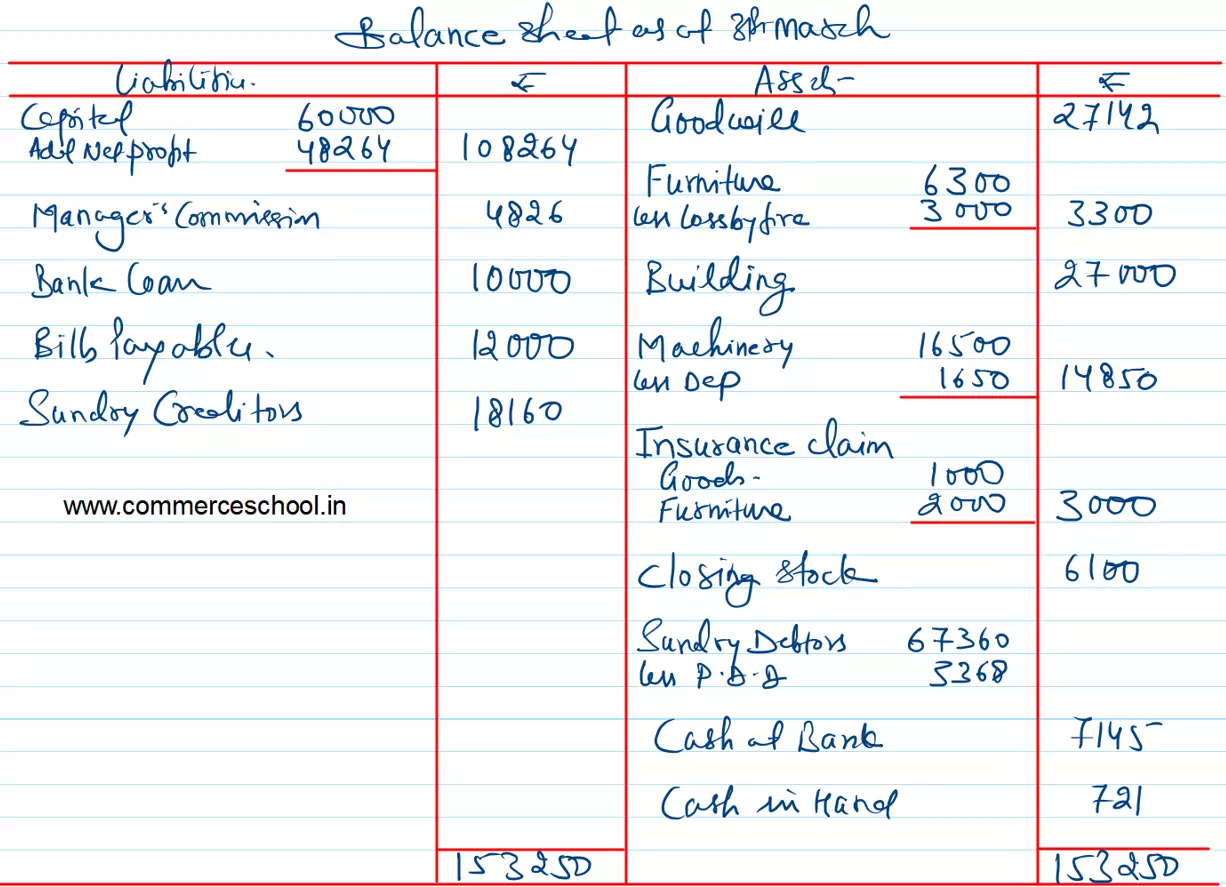 Balance Sheet as of 31st March
Liabilities ₹ Assets ₹
Capital 60000 Goodwill 27142
Add Net profit 48264 108264
Furniture 6300
Manager's Commission 4826 less Loss by fire 3000 3300
Bank Loan 10000 Building 27000
Bills Payable. 12000 Machinery 16500
less Dep 1650 14850
Sundry Creditors 18160
Insurance claim
Goods- 1000
www.commerceschool.in Furniture 2000 3000
Closing Stock 6100
Sundry Debtors 67360
less P.B.D 3368
Cash at Bank 7145
Cash in Hand 721
153250 153250